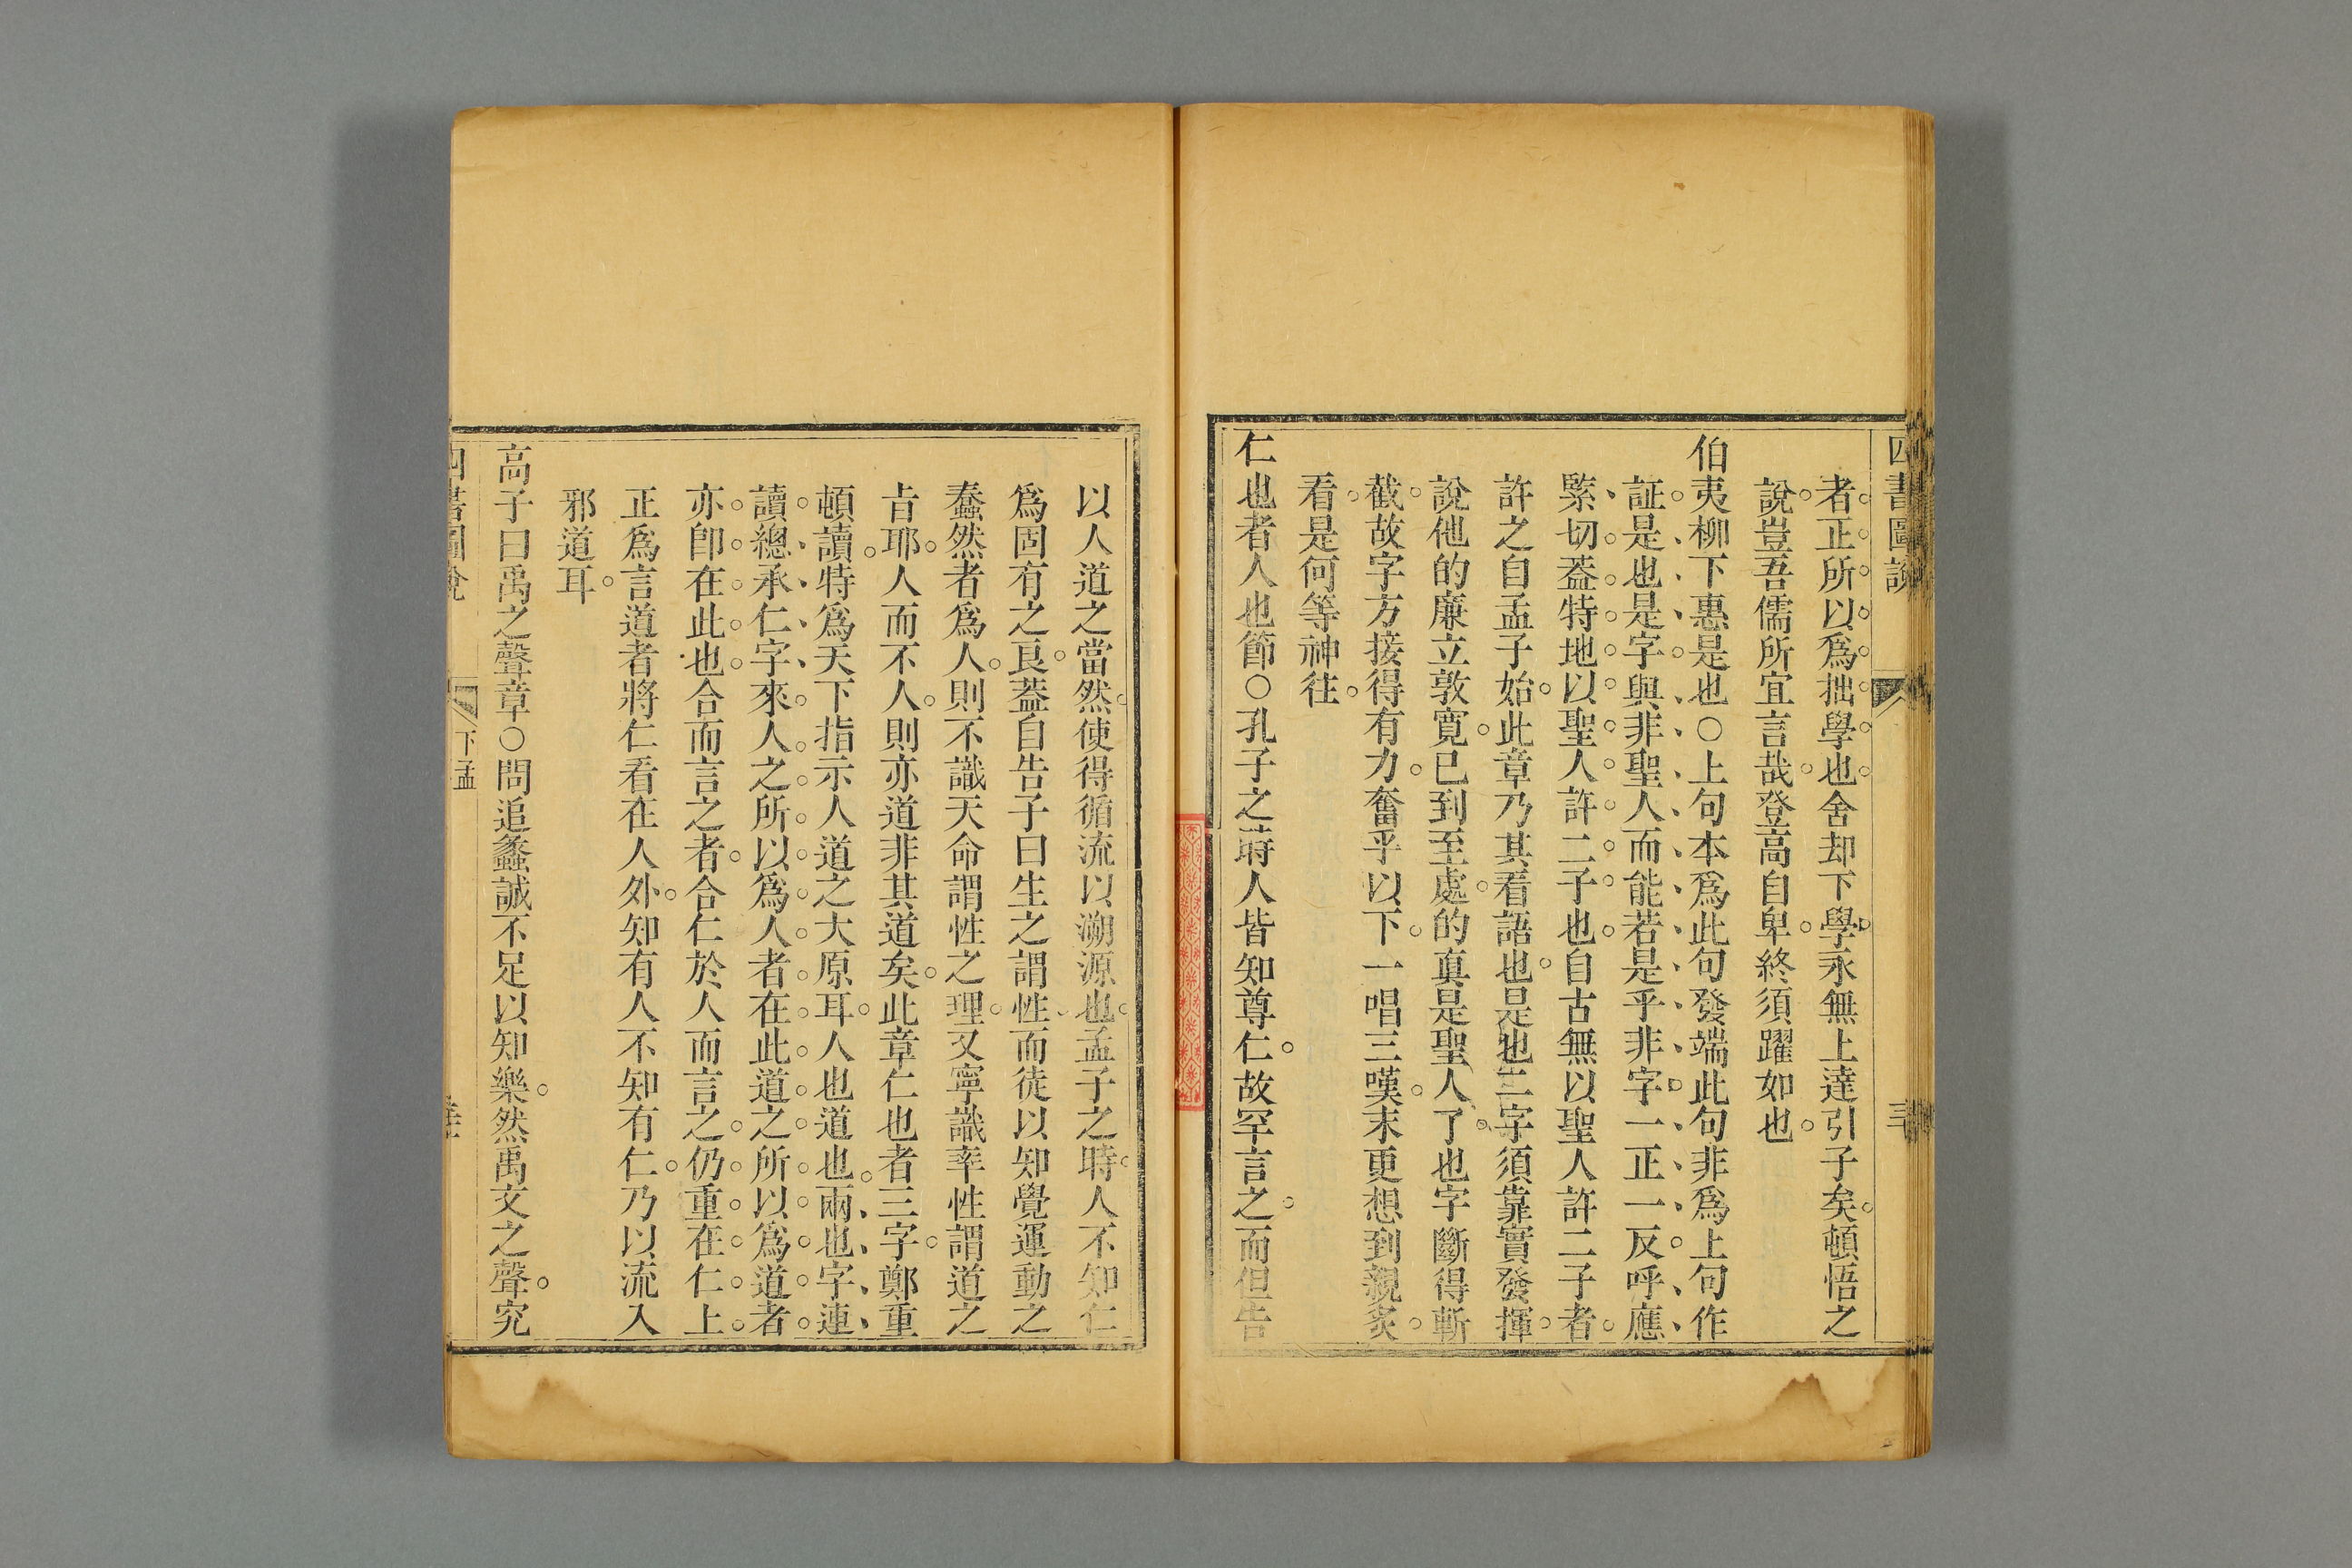 四書圖說
者正所以爲拙學也舍却下學永無上達引子矣頓悟之
說豈吾儒所宜言哉登高自卑終須躍如也
伯夷柳下惠是也○上句本爲此句發端此句非爲上句作
証是也是字與非聖人而能若是乎非字一正一反呼應
緊切葢特地以聖人許二子也自古無以聖人許二子者
許之自孟子始此章乃其看語也是也二字須靠實發揮
說他的廉立敦寬已到至處的真是聖人了也字斷得斬
截故字方接得有力奮乎以下一唱三嘆末更想到親炙
看是何等神徃
仁也者人也節○孔子之時人皆知尊仁故罕言之而但告
以人道之當然使得循流以溯源也孟子之時人不知仁
爲固有之良葢自告子曰生之謂性而徒以知覺運動之
蠢然者爲人則不識天命謂性之理又寧識率性謂道之
㫖耶人而不人則亦道非其道矣此章仁也者三字鄭重
頓讀特爲天下指示人道之大原耳人也道也兩也字連
讀總承仁字來人之所以爲人者在此道之所以爲道者
亦卽在此也合而言之者合仁於人而言之仍重在仁上
正爲言道者將仁看在人外知有人不知有仁乃以流入
邪道耳
高子曰禹之聲章○問追蠡誠不足以知樂然禹文之聲究
四書圖說
下孟